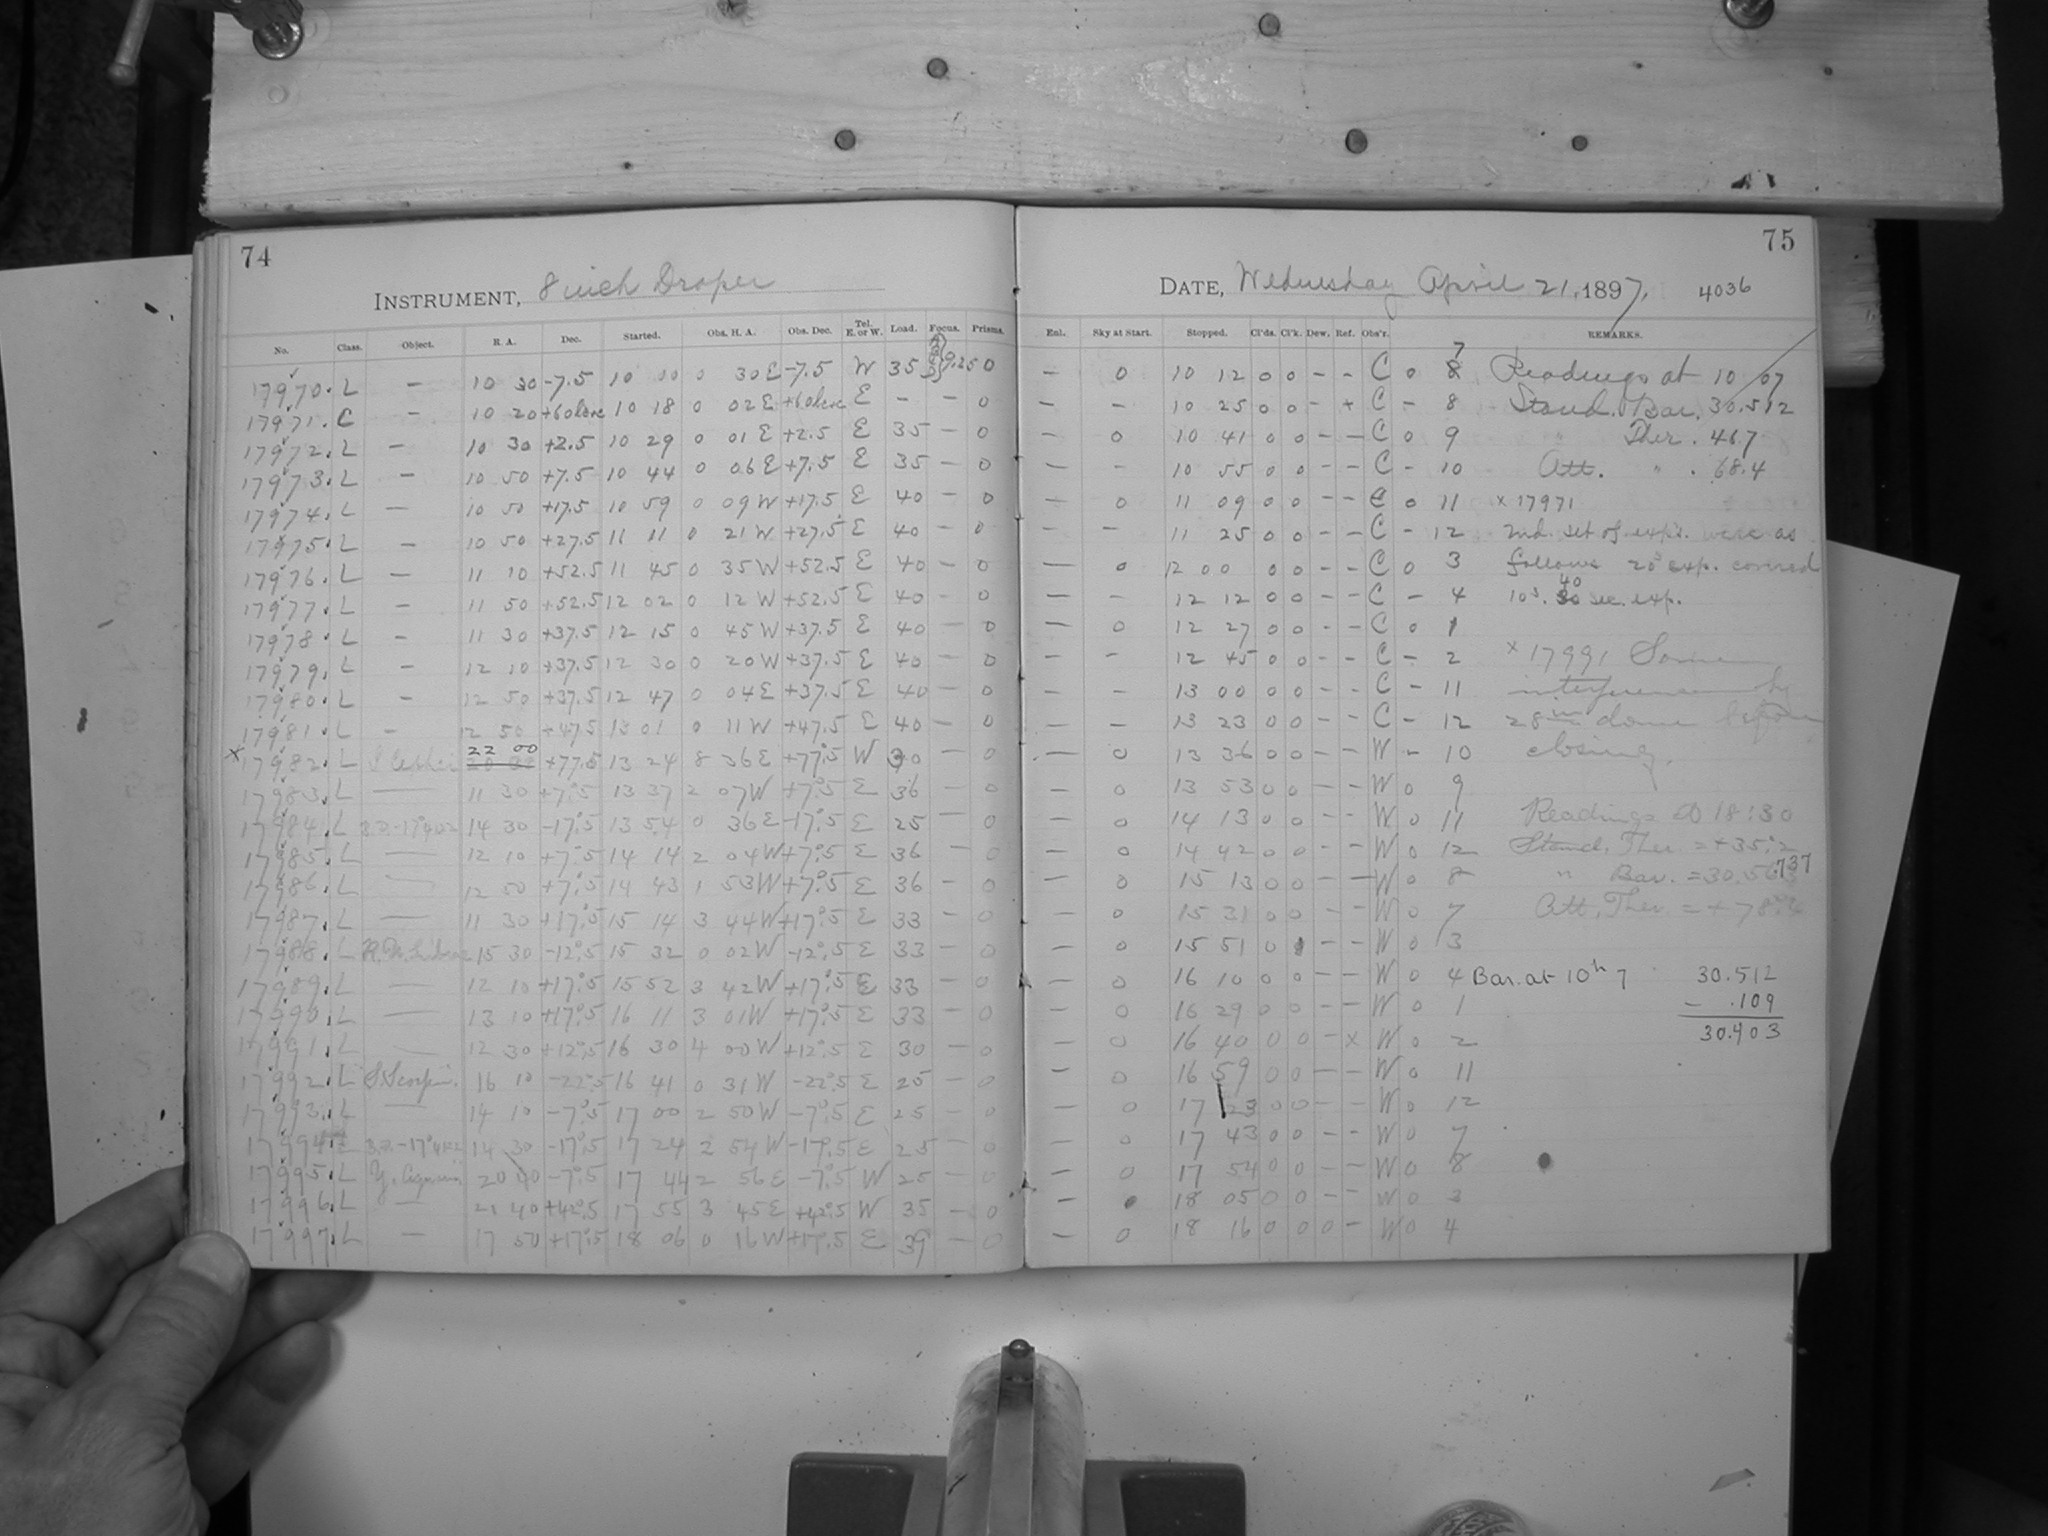 74
INSTRUMENT, 8 inch Draper
No. Class. Object. R. A. Dec. Started. Obs. H. A. Obs. Dec. Tel. E. or W. Load. Focus. Prisms.
17970. L — 10 30 -7.5 10 00 0 30 E -7.5 W 35 9.25 0
17971. C - 10 20 +60 10 18 0 02 E +60 E - - 0
17972. L — 10 30 +2.5 10 29 0 01 E +2.5 E 35 - 0
17973. L — 10 50 +7.5 10 44 0 06 E +7.5 E 35 - 0
17974. L — 10 50 +17.5 10 59 0 09 W +17.5 E 40 - 0
17975. L — 10 50 +27.5 11 11 0 21 W +27.5 E 40 - 0
17976. L — 11 10 +52.5 11 45 0 35 W +52.5 E 40 - 0
17977. L — 11 50 +52.5 12 02 0 12 W +52.5 E 40 - 0
17978. L — 11 30 +37.5 12 15 0 45 W +37.5 E 40 - 0
17979. L — 12 10 +37.5 12 30 0 20 W +37.5 E 40 - 0
17980. L — 12 50 +37.5 12 47 0 04 E +37.5 E 40 - 0
17981. L - 12 50 +47.5 13 01 0 11 W +47.5 E 40 - 0
x 17982. L 22 00 +77.5 13 24 8 36 E +77.5 W 30 - 0
17983. L — 11 30 +7.5 13 37 2 07 W +7.5 E 36 - 0
17984. L 14 30 -17.5 13 54 0 36 E -17.5 E 25 - 0
17985. L — 12 10 +7.5 14 14 2 04 W +7.5 E 36 - 0
17986. L — 12 50 +7.5 14 43 1 53 W +7.5 E 36 - 0
17987. L — 11 30 +17.5 15 14 3 44 W +17.5 E 33 - 0
17988. L 15 30 -12.5 15 32 0 02 W -12.5 E 33 - 0
17989. L — 12 10 +17.5 15 52 3 42 W +17.5 E 33 - 0
17990. L — 13 10 +17.5 16 11 3 01 W +17.5 E 33 - 0
17991. L — 12 30 +12.5 16 30 4 00 W +12.5 E 30 - 0
17992. L S. Scorpii. 16 10 -22.5 16 41 0 31 W -22.5 E 25 - 0
17993. L — 14 10 -7.5 17 00 2 50 W -7.5 E 25 - 0
17994. 14 30 -17.5 17 24 2 54 W -17.5 E 25 - 0
17995. L 20 40 -7.5 17 44 2 56 E -7.5 W 25 - 0
17996. L — 21 40 +42.5 17 55 3 45 E +42.5 W 35 - 0
17997. L — 17 50 +17.5 18 06 0 16 W +17.5 E 39 - 0
75
DATE, Wednesday April 21, 1897. 4036
Enl. Sky at Start. Stopped. Cl'ds. Cl'k. Dew. Ref. Obs'r. REMARKS.
— 0 10 12 0 0 - - C 0 7 Readings at 10 07
— - 10 25 0 0 - + C - 8 Stand. Bar. 30.512
— 0 10 41 0 0 - - C 0 9 " Ther. 46.7
— - 10 55 0 0 - - C - 10 Att. " . 68.4
— 0 11 09 0 0 - - C 0 11 x 17971
— — 11 25 0 0 - - C - 12 2nd. set of exp's. were as
— 0 12 00 0 0 - - C 0 3 follows 20s exp. covered
— - 12 12 0 0 - - C - 4 10s. 40 sec. exp.
— 0 12 27 0 0 - - C 0 1
— - 12 45 0 0 - - C - 2 x 17991 Some
— - 13 00 0 0 - - C - 11 interference by
— - 13 23 0 0 - - C - 12 28in dome before
— 0 13 36 0 0 - - W - 10 closing.
— 0 13 53 0 0 - - W 0 9
— 0 14 13 0 0 - - W 0 11 Readings @ 18:30
— 0 14 42 0 0 - - W 0 12 Stand. Ther. = +35.2
— 0 15 13 0 0 - - W 0 8 " Bar. = 30.5 737
— 0 15 31 0 0 - - W 0 7 Att. Ther = +78.4
— 0 15 51 0 1 - - W 0 3
— 0 16 10 0 0 - - W 0 4 Bar. at 10h 7 30.512
— 0 16 29 0 0 - - W 0 1 - .109
— 0 16 40 0 0 - x W 0 2 30.403
— 0 16 59 0 0 - - W 0 11
— 0 17 23 0 0 - - W 0 12
— 0 17 43 0 0 - - W 0 7
— 0 17 54 0 0 - - W 0 8
— 0 18 05 0 0 - - W 0 3
— 0 18 16 0 0 0 - W 0 4